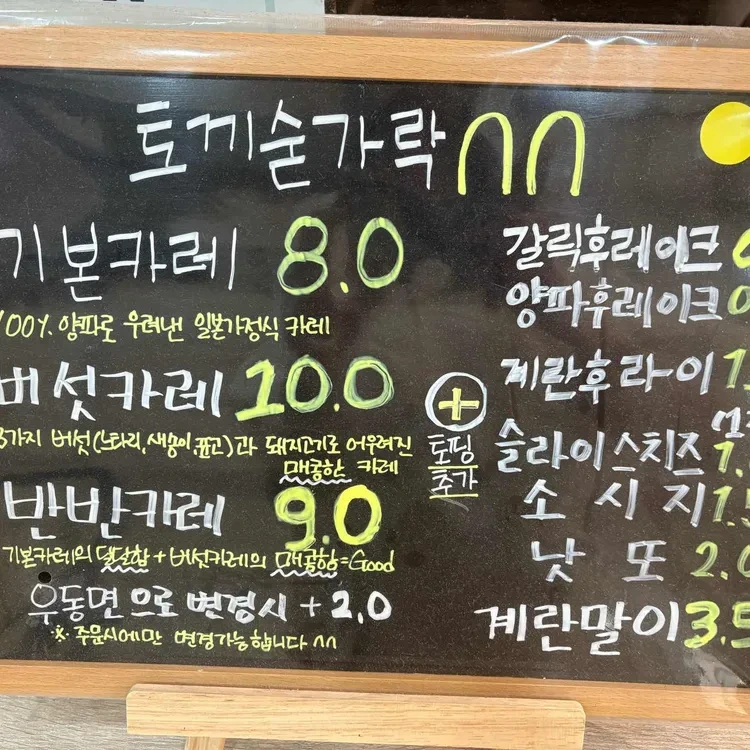 토끼숟가락 ∩∩
기본카레 8.0
100% 양파로 우려낸 일본가정식 카레
버섯카레 10.0
3가지 버섯(느타리,새송이,표고)과 돼지고기로 어우려진
매콤한 카레
반반카레 9.0
기본카레의 달달함 + 버섯카레의 매콤함=Good
우동면으로 변경시 + 2.0
※ 주문시에만 변경가능합니다 ∩∩
+
토핑
추가
갈릭후레이크
양파후레이크
계란후라이
슬라이스치즈
소시지
낫또
계란말이